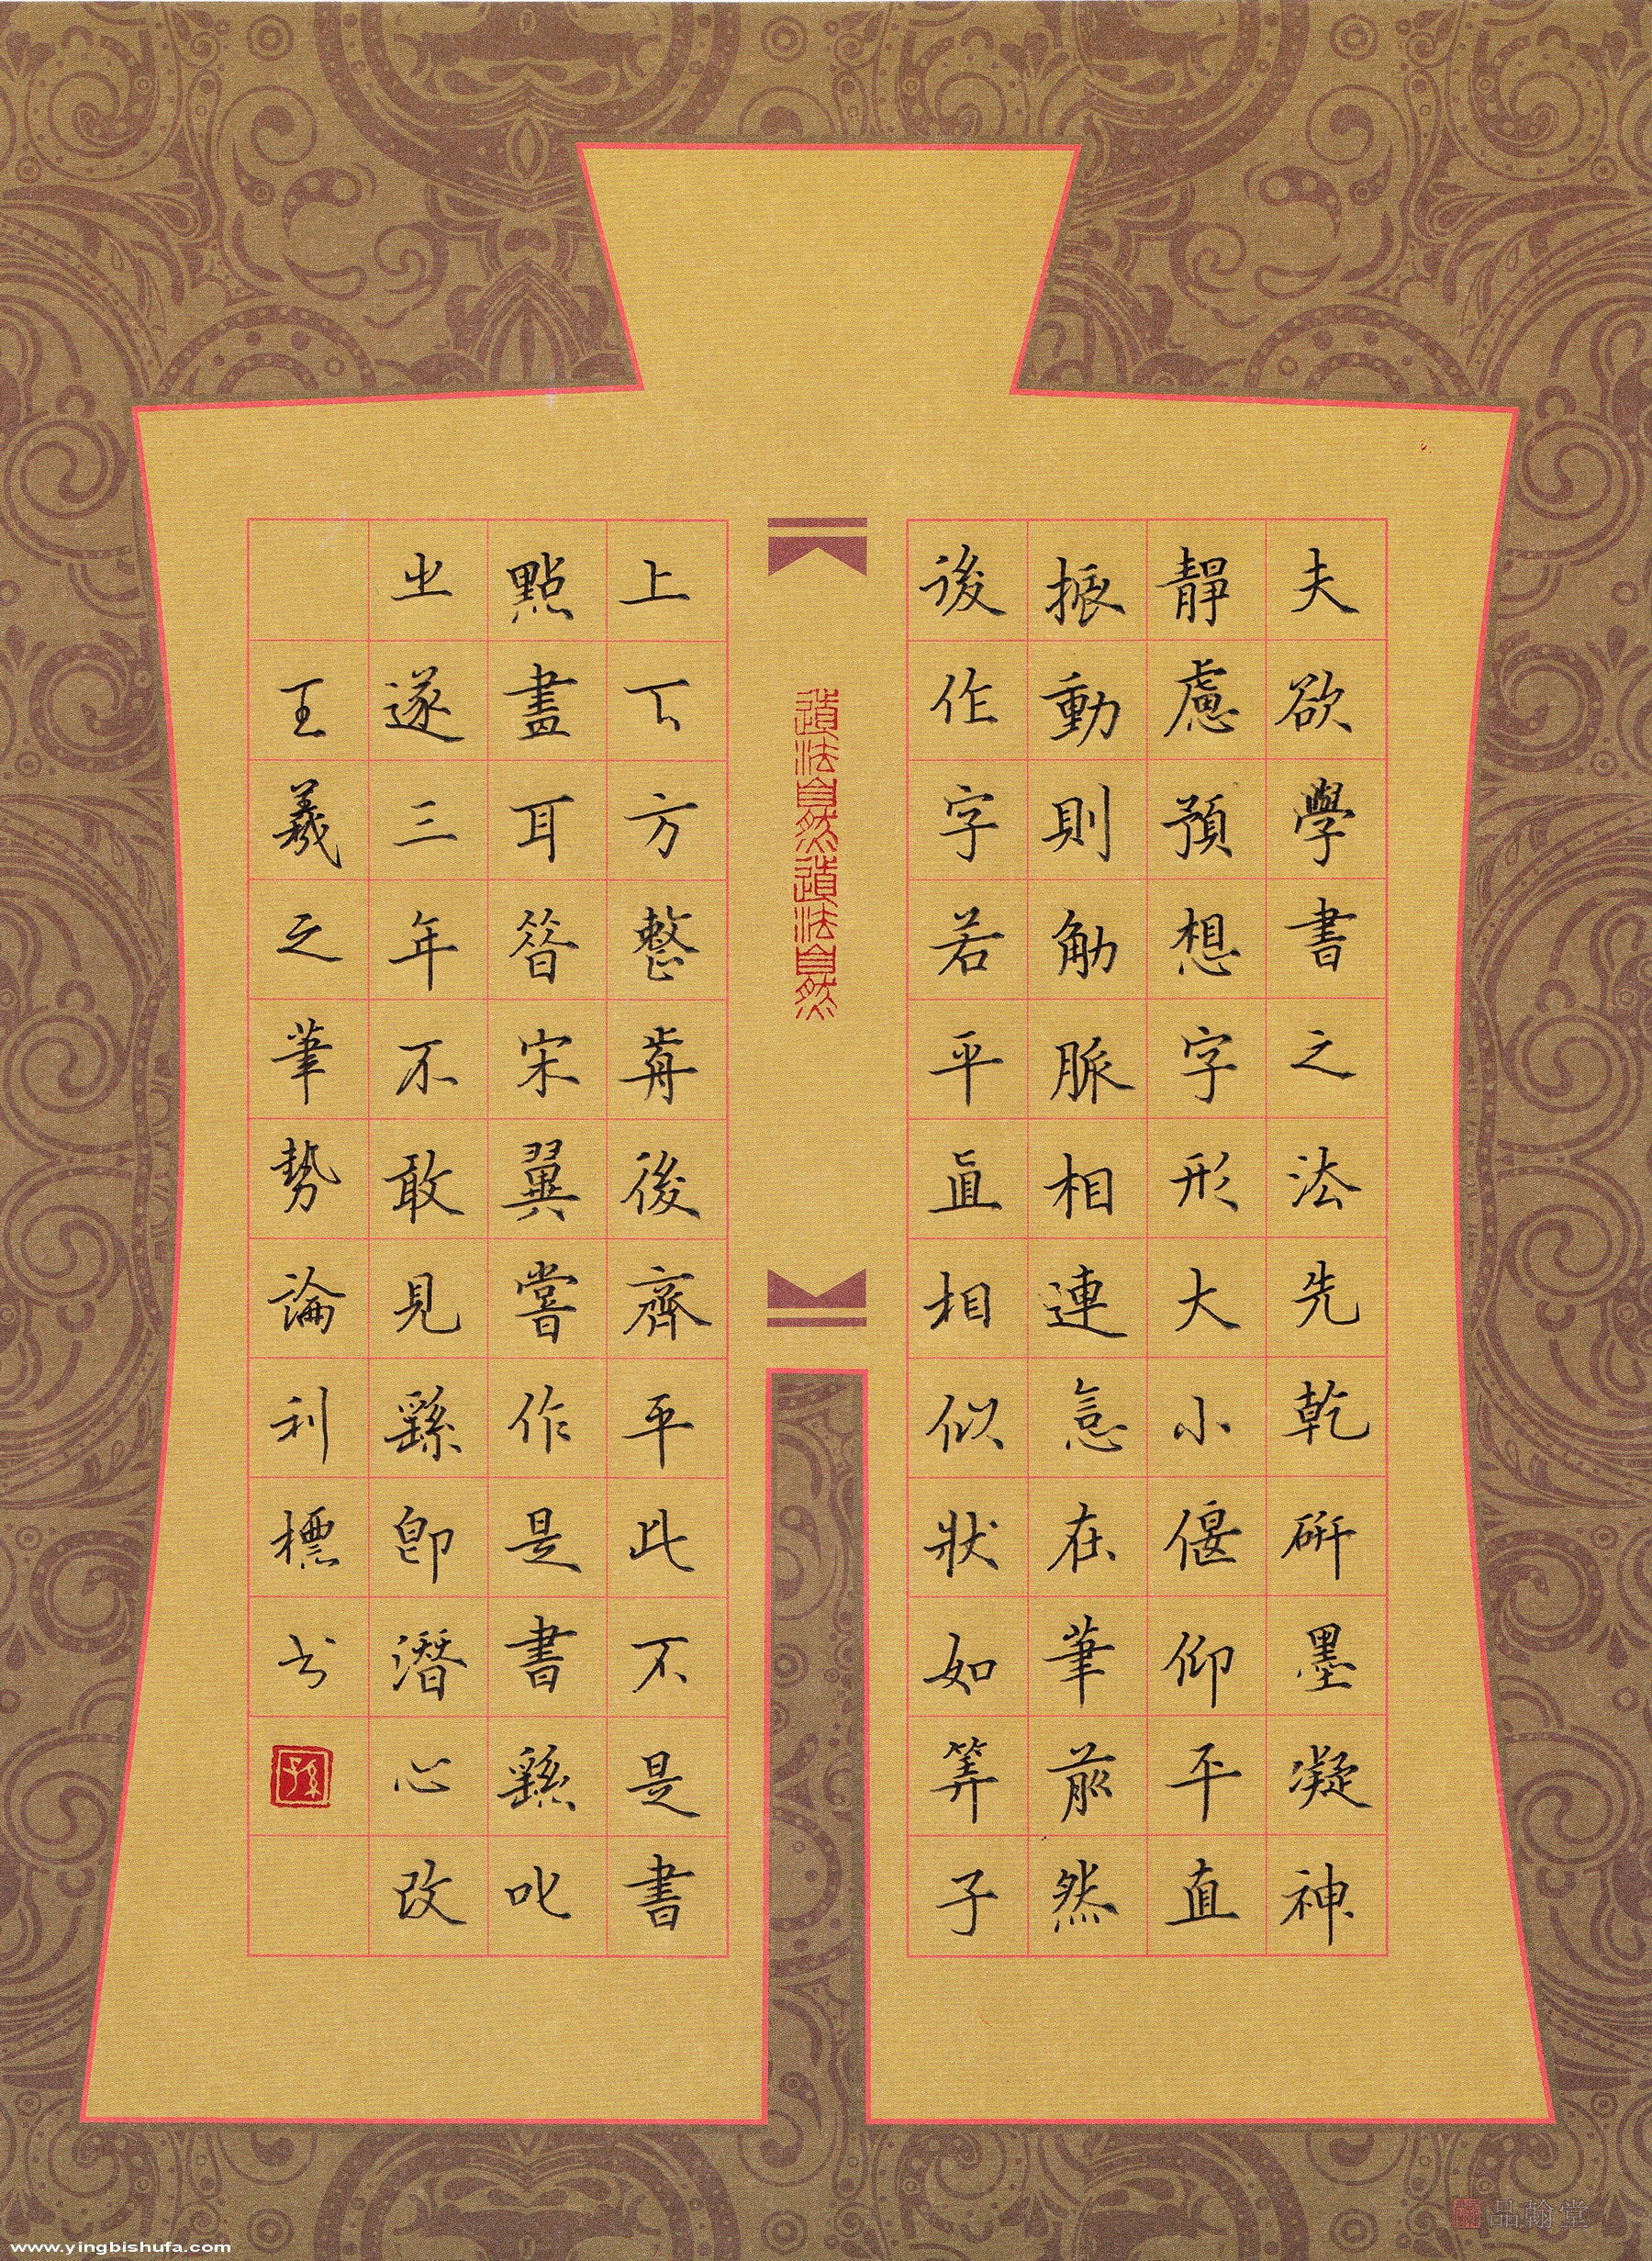 夫欲學書之法先乾研墨凝神
靜慮預想字形大小偃仰平直
振動則觔脈相連意在筆前然
後作字若平直相似狀如筭子
上下方整前後齊平此不是書
點畫耳昔宋翼嘗作是書繇叱
之遂三年不敢見繇即潛心改
王羲之筆勢論利標书
道法自然道法自然
品翰堂
www.yingbishufa.com